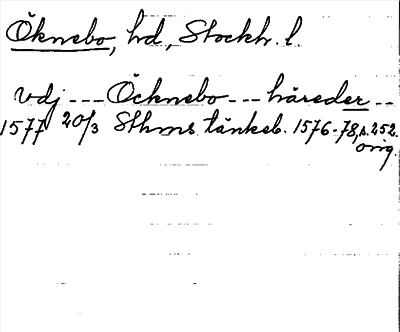 Öknebo, hd, Stockh. l.
vdj --- Öcknebo --- häreder --
1577 20/3 Sthms tänkeb. 1576-78, s. 252.
orig.